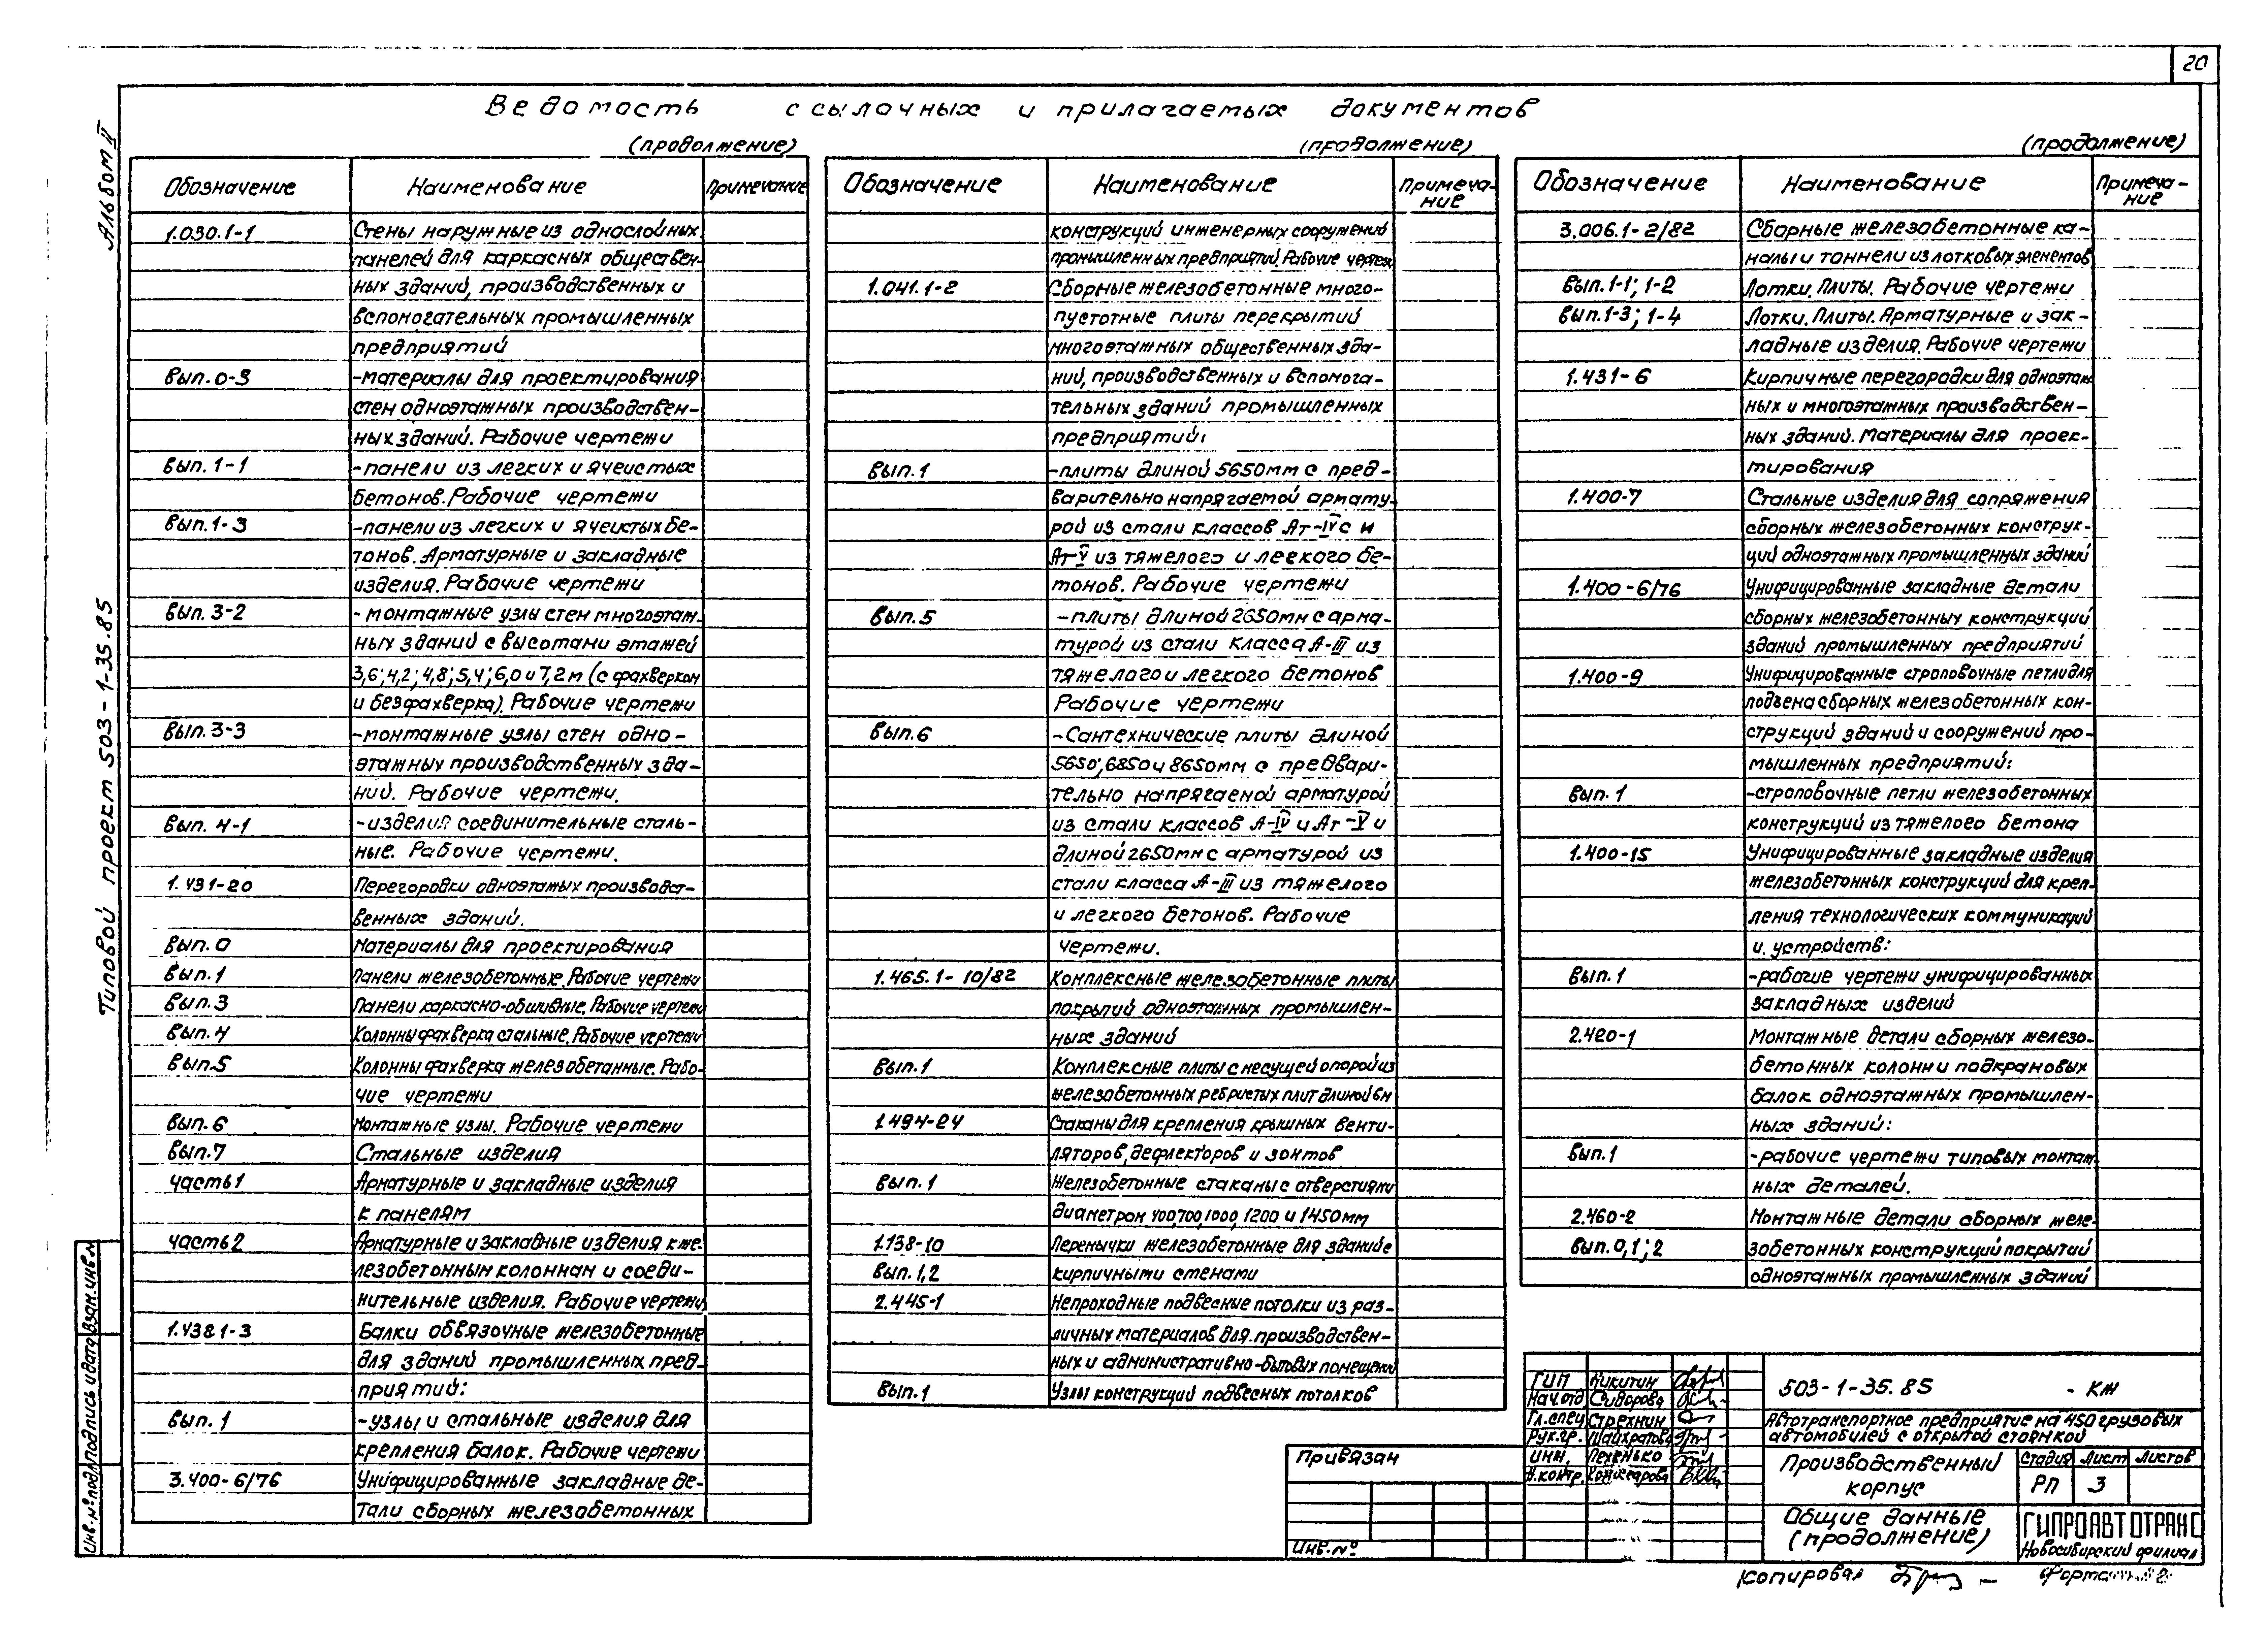 20
Альбом II
Типовой проект 503-1-35.85
Ведомость ссылочных и прилагаемых документов
(продолжение)
Обозначение Наименование Примечание
1.030.1-1 Стены наружные из однослойных
панелей для каркасных обществен-
ных зданий, производственных и
вспомогательных промышленных
предприятий
вып. 0-3 -материалы для проектирования
стен одноэтажных производствен-
ных зданий. Рабочие чертежи
вып. 1-1 -панели из легких и ячеистых
бетонов. Рабочие чертежи
вып. 1-3 -панели из легких и ячеистых бе-
тонов. Арматурные и закладные
изделия. Рабочие чертежи
вып. 3-2 - монтажные узлы стен многоэтаж-
ных зданий с высотами этажей
3,6; 4,2; 4,8; 5,4; 6,0 и 7,2 м (с фахверком
и без фахверка). Рабочие чертежи
вып. 3-3 -монтажные узлы стен одно-
этажных производственных зда-
ний. Рабочие чертежи.
вып. 4-1 -изделия соединительные сталь-
ные. Рабочие чертежи.
1.431-20 Перегородки одноэтажных производст-
венных зданий.
вып. 0 Материалы для проектирования
вып. 1 Панели железобетонные. Рабочие чертежи
вып. 3 Панели каркасно-обшивные. Рабочие чертежи
вып. 4 Колонны фахверка стальные. Рабочие чертежи
вып. 5 Колонны фахверка железобетонные. Рабо-
чие чертежи
вып. 6 Монтажные узлы. Рабочие чертежи
вып. 7 Стальные изделия
часть 1 Арматурные и закладные изделия
к панелям
часть 2 Арматурные и закладные изделия к же-
лезобетонным колоннам и соеди-
нительные изделия. Рабочие чертежи
1.438.1-3 Балки обвязочные железобетонные
для зданий промышленных пред-
приятий:
вып. 1 -узлы и стальные изделия для
крепления балок. Рабочие чертежи
3.400-6/76 Унифицированные закладные де-
тали сборных железобетонных
(продолжение)
Обозначение Наименование Примеча-
ние
конструкций инженерных сооружений
промышленных предприятий. Рабочие чертеж
1.041.1-2 Сборные железобетонные много-
пустотные плиты перекрытий
многоэтажных общественных зда-
ний, производственных и вспомога-
тельных зданий промышленных
предприятий:
вып. 1 -плиты длиной 5650мм с пред-
варительно напрягаемой армату-
рой из стали классов Ат-IVс и
Ат-V из тяжелого и легкого бе-
тонов. Рабочие чертежи
вып. 5 -плиты длиной 2650мм с арма-
турой из стали класса А-III из
тяжелого и легкого бетонов
Рабочие чертежи
вып. 6 -Сантехнические плиты длиной
5650; 6850 и 8650мм с предвари-
тельно напрягаемой арматурой
из стали классов А-IV и Ат-V и
длиной 2650мм с арматурой из
стали класса А-III из тяжелого
и легкого бетонов. Рабочие
чертежи.
1.465.1-10/82 Комплексные железобетонные плиты
покрытий одноэтажных промышлен-
ных зданий
вып. 1 Комплексные плиты с несущей опорой из
железобетонных ребристых плит длиной 6м
1.494-24 Стаканы для крепления крышных венти-
ляторов, дефлекторов и зонтов
вып. 1 Железобетонные стаканы с отверстиями
диаметром 400,700,1000,1200 и 1450мм
1.138-10 Перемычки железобетонные для зданий с
вып. 1,2 кирпичными стенами
2.445-1 Непроходные подвесные потолки из раз-
личных материалов для производствен-
ных и административно-бытовых помещений
вып. 1 Узлы конструкций подвесных потолков
(продолжение)
Обозначение Наименование Примеча-
ние
3.006.1-2/82 Сборные железобетонные ка-
налы и тоннели из лотковых элементов
вып. 1-1; 1-2 Лотки. Плиты. Рабочие чертежи
вып. 1-3; 1-4 Лотки. Плиты. Арматурные и зак-
ладные изделия. Рабочие чертежи
1.431-6 Кирпичные перегородки для одноэтаж-
ных и многоэтажных производствен-
ных зданий. Материалы для проек-
тирования
1.400-7 Стальные изделия для сопряжения
сборных железобетонных конструк-
ций одноэтажных промышленных зданий
1.400-6/76 Унифицированные закладные детали
сборных железобетонных конструкций
зданий промышленных предприятий
1.400-9 Унифицированные строповочные петли для
подъема сборных железобетонных кон-
струкций зданий и сооружений про-
мышленных предприятий:
вып. 1 -строповочные петли железобетонных
конструкций из тяжелого бетона
1.400-15 Унифицированные закладные изделия
железобетонных конструкций для креп-
ления технологических коммуникаций
и устройств:
вып. 1 -рабочие чертежи унифицированных
закладных изделий
2.420-1 Монтажные детали сборных железо-
бетонных колонн и подкрановых
балок одноэтажных промышлен-
ных зданий:
вып. 1 -рабочие чертежи типовых монтаж-
ных деталей.
2.460-2 Монтажные детали сборных желе-
вып. 0,1; 2 зобетонных конструкций покрытий
одноэтажных промышленных зданий
Привязан
Инв.№
ГИП Никитин
Нач.отд. Сидорова
Гл.спец Стрехнин
Рук.гр. Шайхратова
Инж.
Н.контр.
503-1-35.85 - КЖ
Автотранспортное предприятие на 450 грузовых
автомобилей с открытой стоянкой
Производственный
корпус
Стадия Лист Листов
РП 3
Общие данные
(продолжение)
ГИПРОАВТОТРАНС
Новосибирский филиал
Копировал Формат
Инв.№ подл. Подпись и дата Взам.инв.№